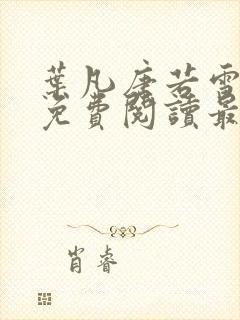 葉凡唐若雪
免費閱讀最
肖睿